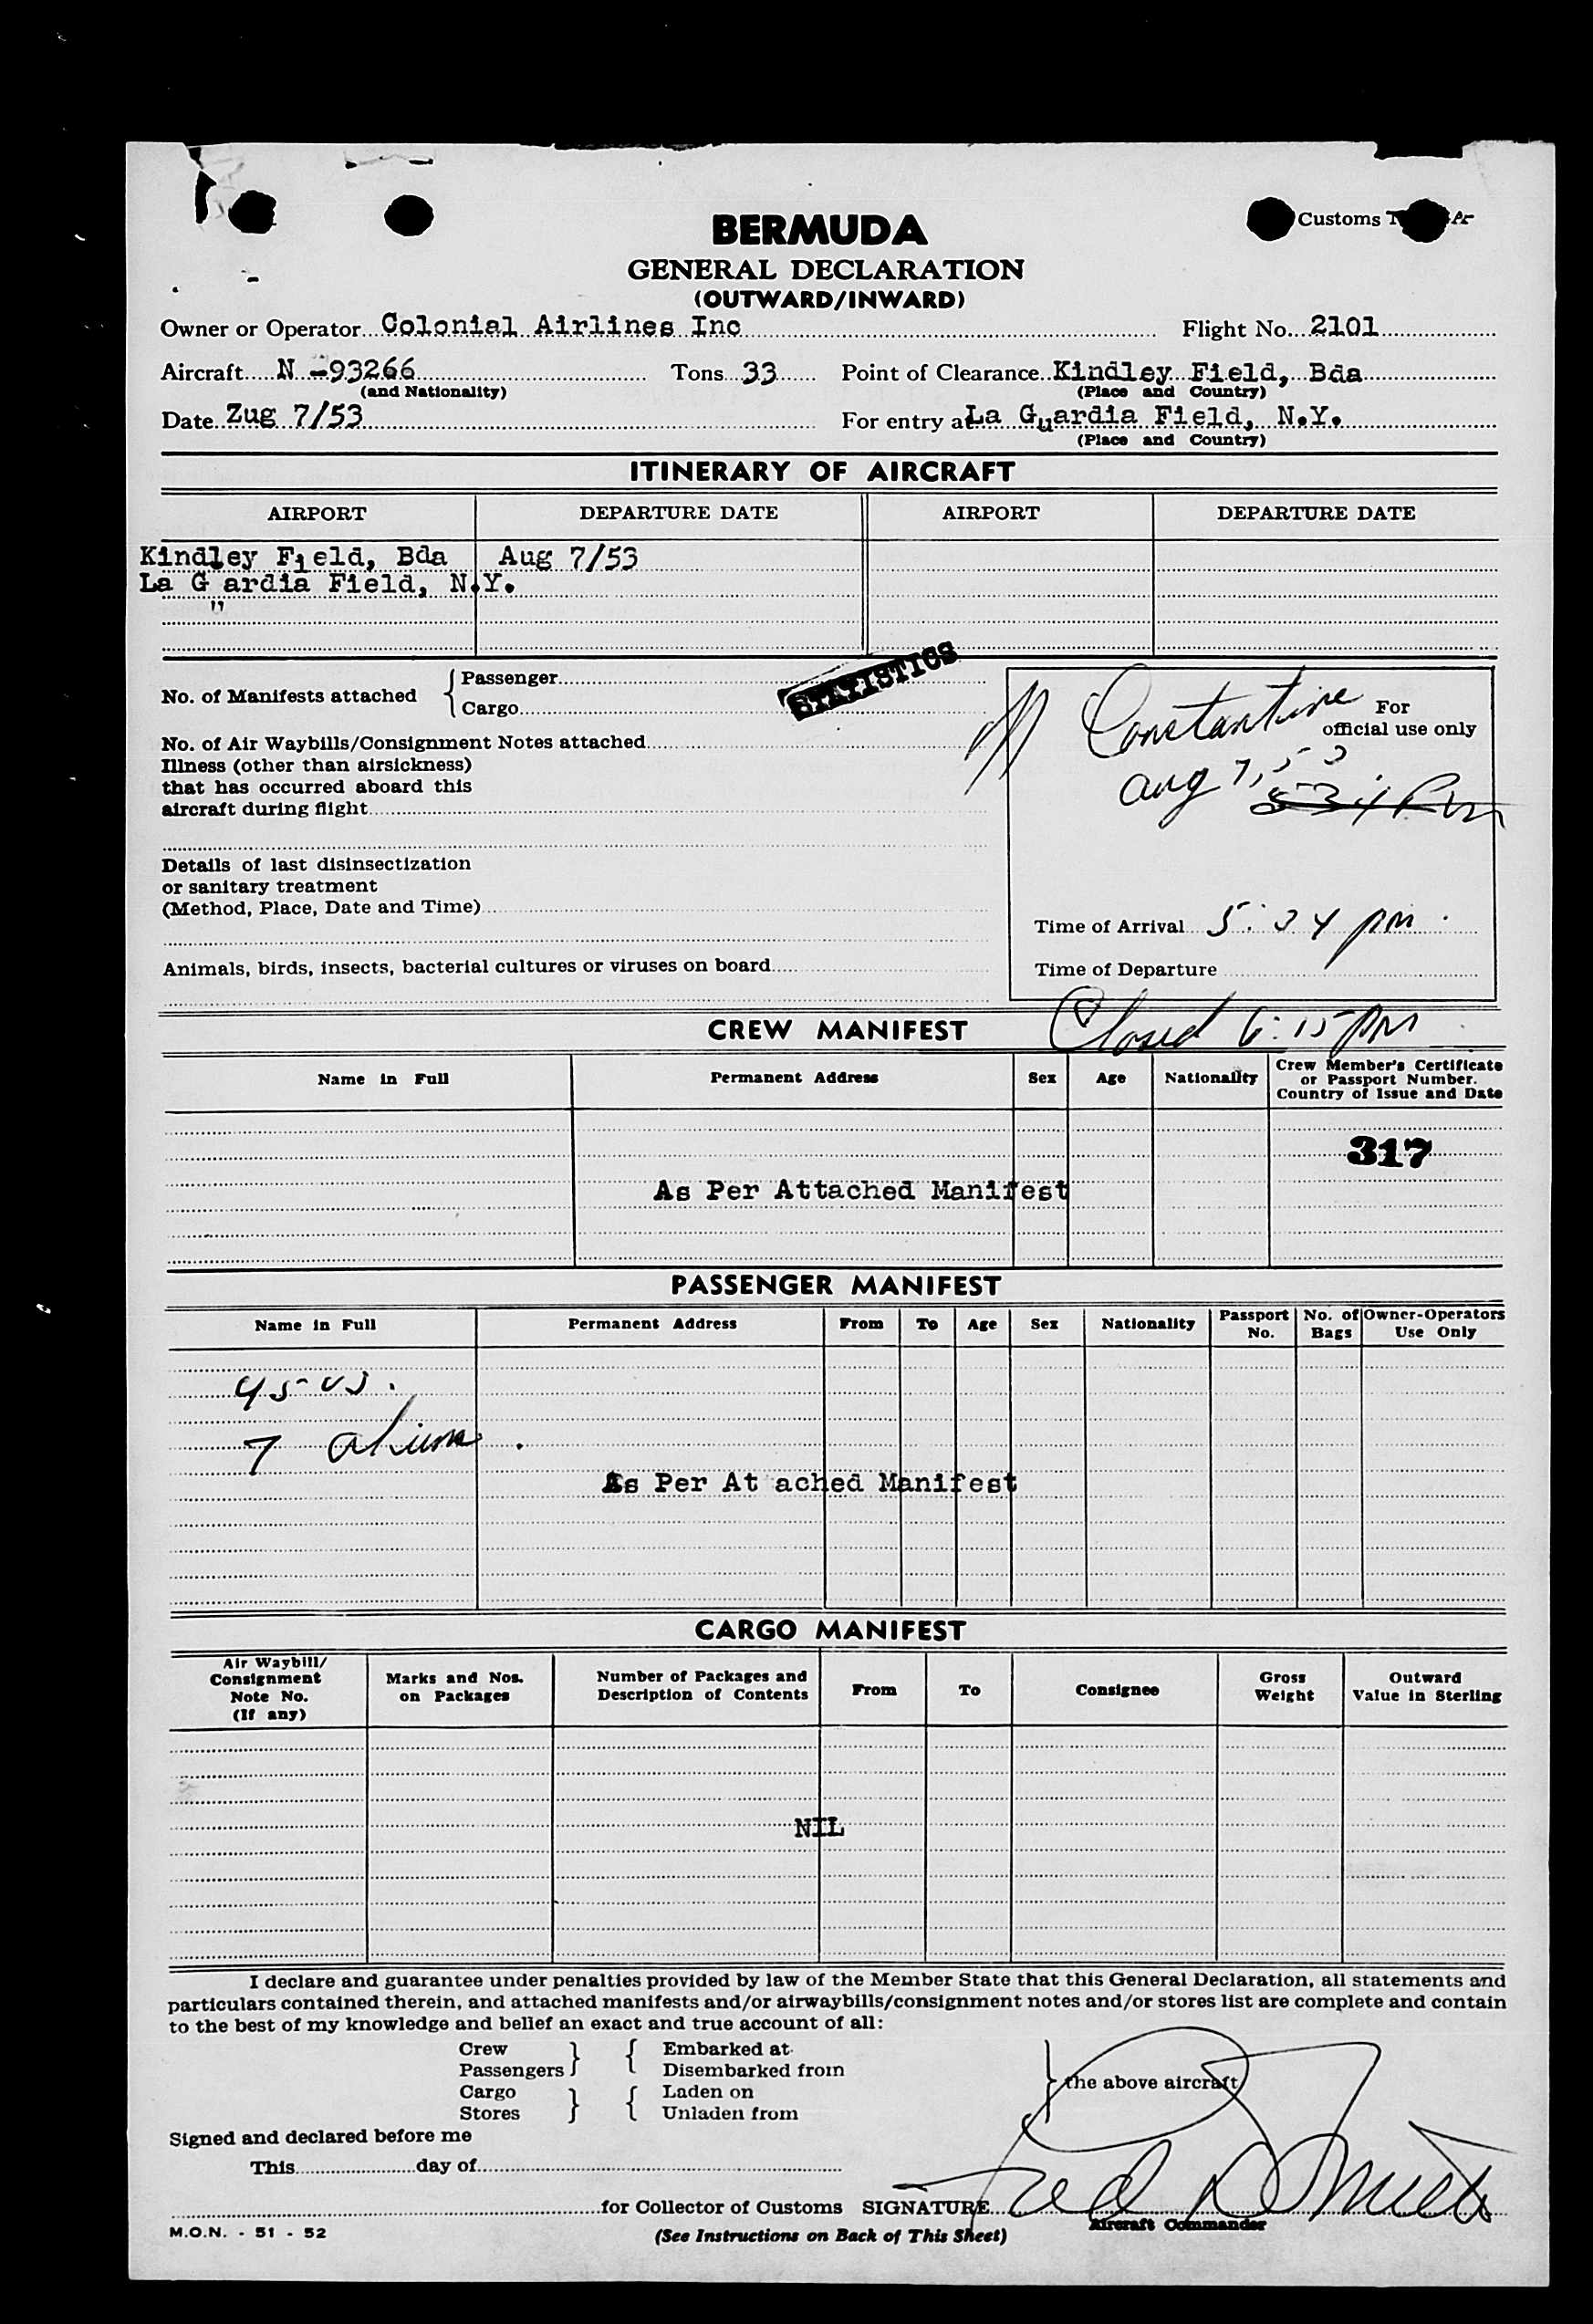 Customs
BERMUDA
GENERAL DECLARATION
(OUTWARD/INWARD)
Owner or Operator Colonial Airlines Inc Flight No. 2101
Aircraft N -93266 Tons 33 Point of Clearance Kindley Field, Bda
(and Nationality) (Place and Country)
Date Zug 7/53 For entry at La Guardia Field, N.Y.
(Place and Country)
ITINERARY OF AIRCRAFT
AIRPORT DEPARTURE DATE AIRPORT DEPARTURE DATE
Kindley Field, Bda Aug 7/53
La G ardia Field, N.Y.
"
STATISTICS
No. of Manifests attached { Passenger
Cargo
Constantine
For official use only
Aug 7, 53
5 34 Pm
No. of Air Waybills/Consignment Notes attached
Illness (other than airsickness)
that has occurred aboard this
aircraft during flight
Details of last disinsectization
or sanitary treatment
(Method, Place, Date and Time)
Time of Arrival 5:34 pm
Animals, birds, insects, bacterial cultures or viruses on board
Time of Departure
Closed 6:15 PM
CREW MANIFEST
Name in Full Permanent Address Sex Age Nationality Crew Member's Certificate or Passport Number. Country of Issue and Date
317
As Per Attached Manifest
PASSENGER MANIFEST
Name in Full Permanent Address From To Age Sex Nationality Passport No. No. of Bags Owner-Operators Use Only
45 US.
7 aliens
As Per At ached Manifest
CARGO MANIFEST
Air Waybill/ Consignment Note No. (If any) Marks and Nos. on Packages Number of Packages and Description of Contents From To Consignee Gross Weight Outward Value in Sterling
NIL
I declare and guarantee under penalties provided by law of the Member State that this General Declaration, all statements and
particulars contained therein, and attached manifests and/or airwaybills/consignment notes and/or stores list are complete and contain
to the best of my knowledge and belief an exact and true account of all:
Crew } { Embarked at
Passengers } { Disembarked from
Cargo } { Laden on
Stores } { Unladen from
} the above aircraft
Signed and declared before me
This day of
for Collector of Customs SIGNATURE
Aircraft Commander
M.O.N. - 51 - 52
(See Instructions on Back of This Sheet)